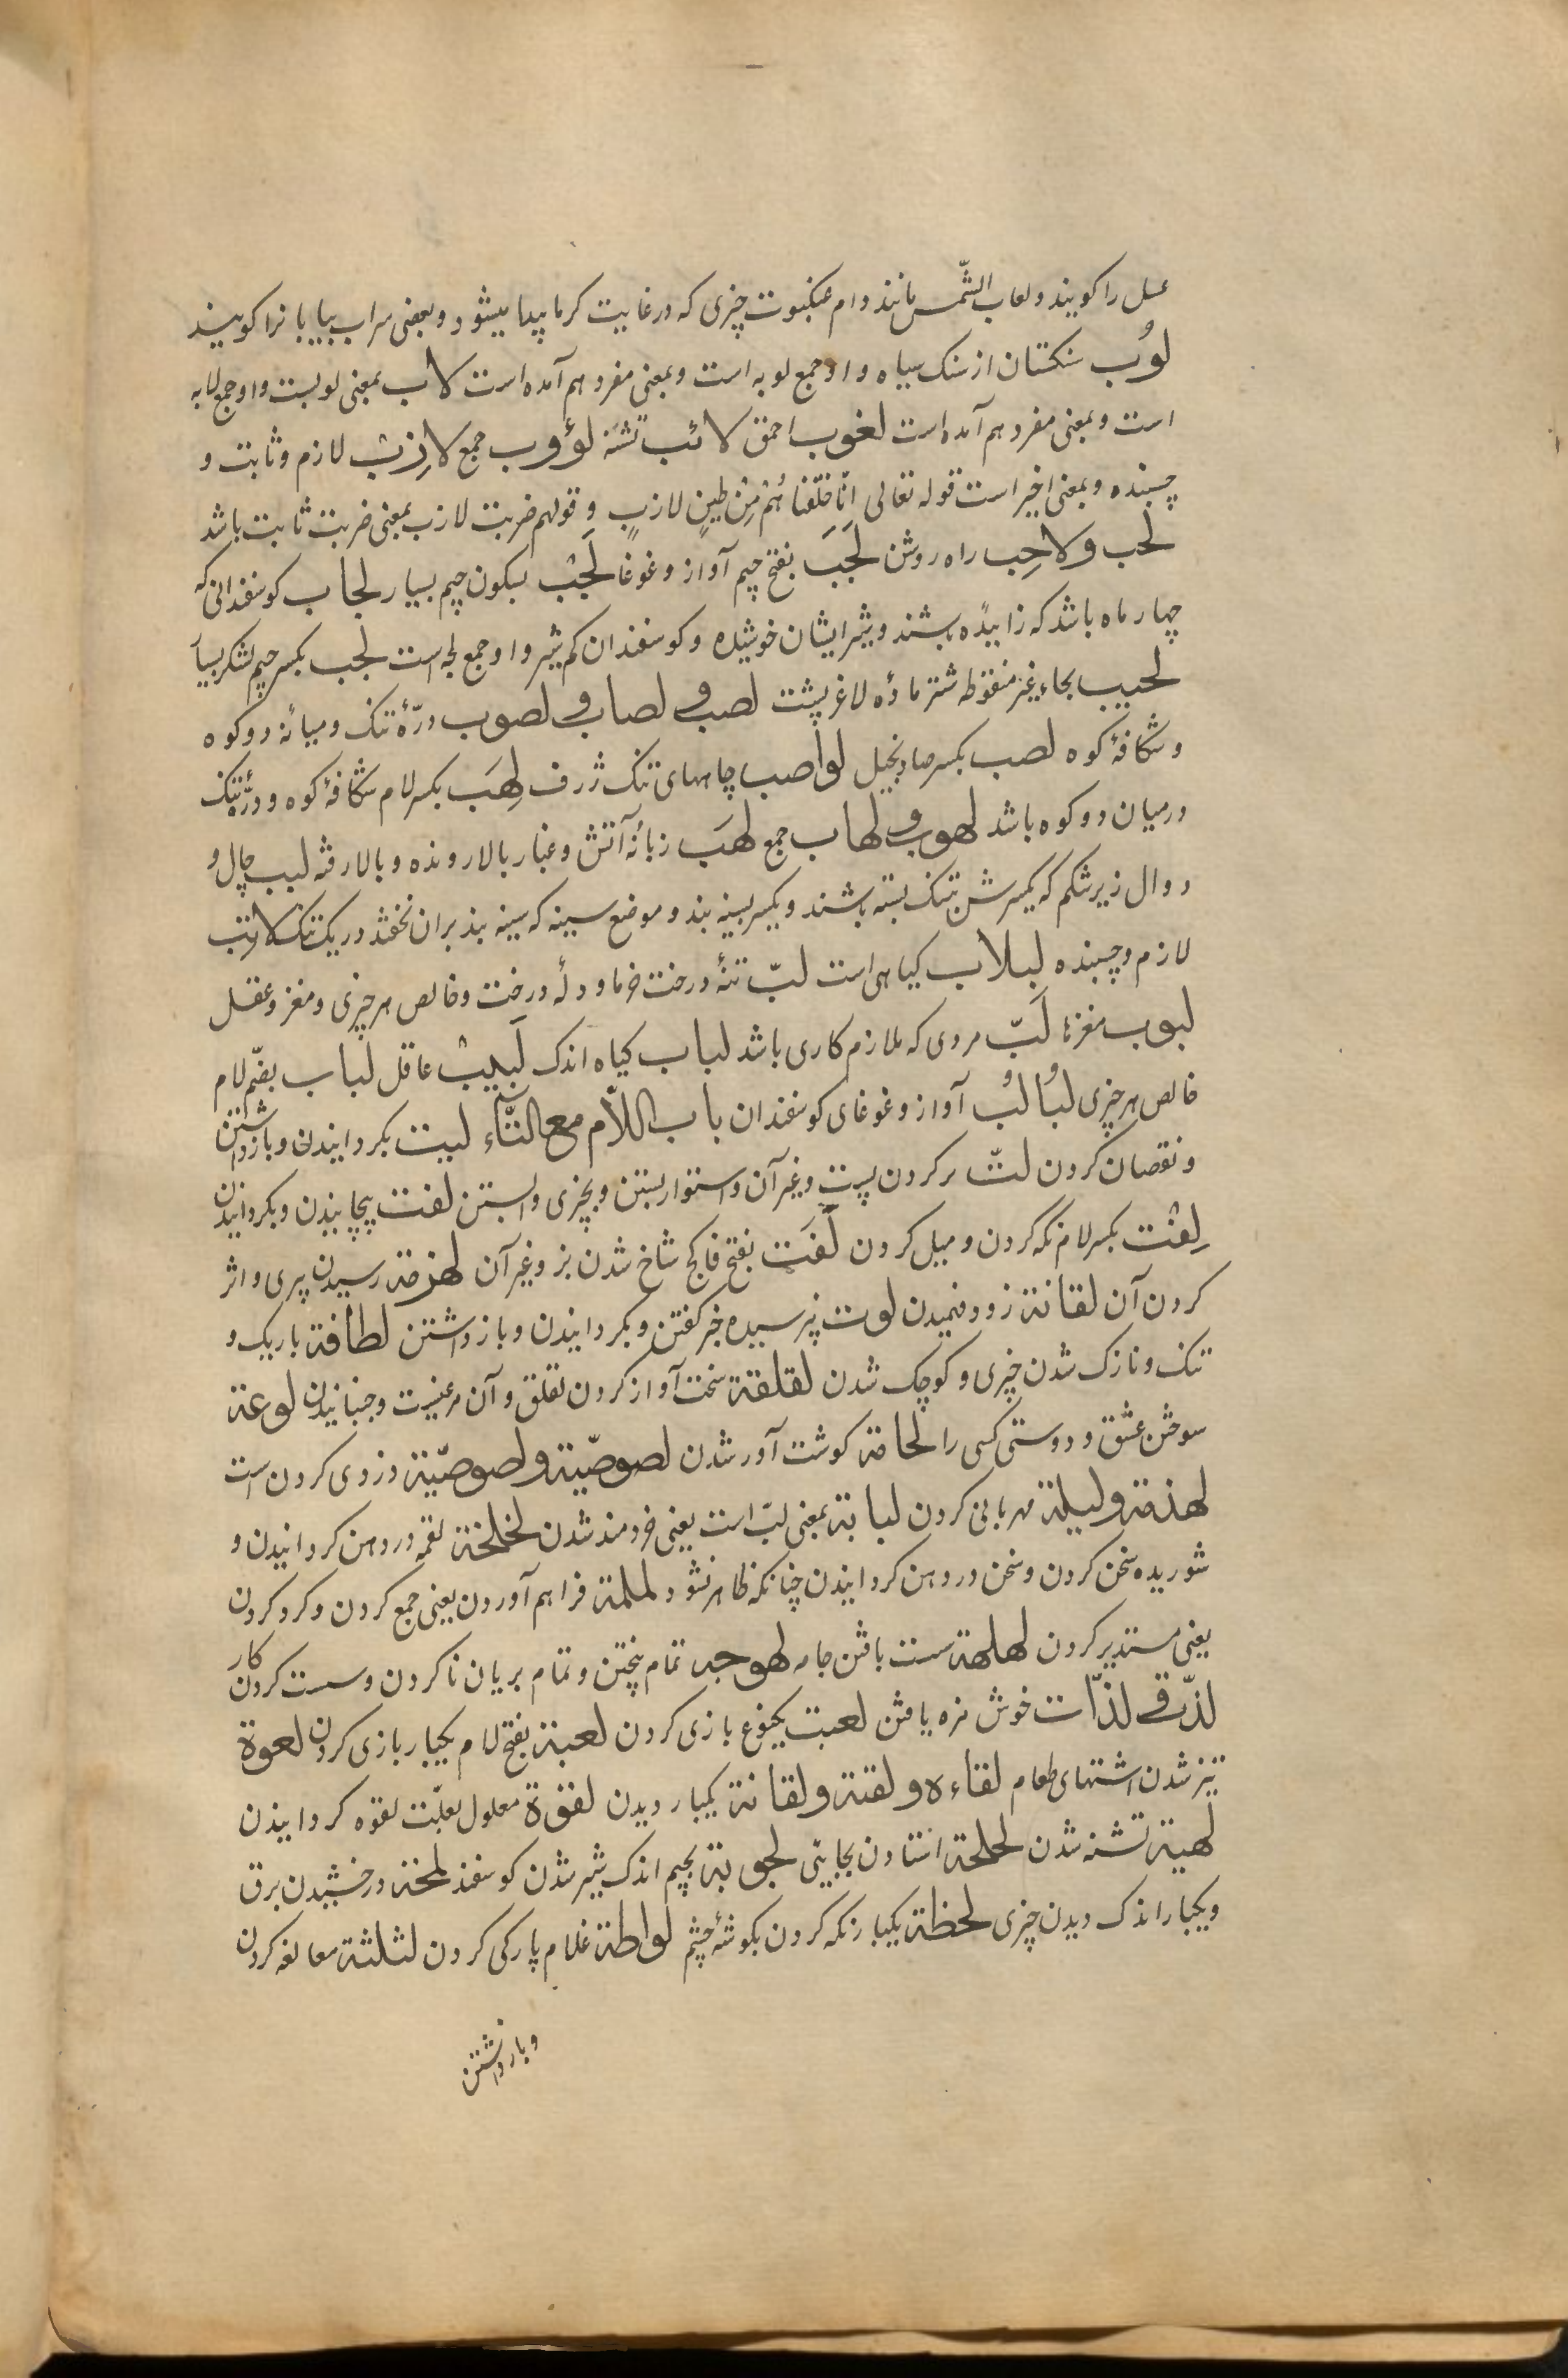 عسل را کویند ولعاب الشّمس مانند دام عنکبوت چیزی که در غایت کرما پیدا میشود وبعضی سراب بیابانرا کویند
لوُب سنکستان از سنک سیاه واو جمع لوبه است وبمعنی مفرد هم آمده است لاب بمعنی لوبست واو جمع لابه
است وبمعنی مفرد هم آمده است لغوب احمق لائب تشنه لؤوب جمع لازِبْ لازم وثابت و
چسبنده وبمعنی اخیر است قوله تعالی انّا خلقناهُمْ مِنْ طینٍ لازبٍ و قولهم ضربت لازب بمعنی ضربت ثابت باشد
لحب ولاحِب راه روشن لَجَبَ بفتح جیم آواز وغوغا لَجْبْ بسکون جیم بسیار لجاب کوسفندانی که
چهار ماه باشد که زاییده باشند وشیر ایشان خوشیده وکوسفندان کم شیر واو جمع لجبه است لجب بکسر جیم لشکر بسیار
لحیب بحاء غیر منقوطه شتر مادهٔ لاغر پشت لصب ولصاب ولصوب درّهٔ تنک ومیانهٔ دو کوه
وشکافهٔ کوه لصب بکسر صاد بخیل لواصب چاههای تنک ژرف لِهَب بکسر لام شکافهٔ کوه ودرّهٔ تنک
درمیان دو کوه باشد لهوب ولهاب جمع لهَب زبانهٔ آتش وغبار بالا رونده وبالا رفته لبب چال و
دوال زیر شکم که یکسرش بتنک بسته باشند ویکسر بسینه بند وموضع سینه که سینه بند بران نخفتد وریک تنک لاتِب
لازم وچسبنده لبلاب کیاهی است لبّ تنهٔ درخت خرما ودلهٔ درخت وخالص هر چیزی ومغز وعقل
لبوب مغزها لَبّ مردی که ملازم کاری باشد لباب کیاه اندک لَبیبْ عاقل لُباب بضمّ لام
خالص هر چیزی لبُالبُ آواز وغوغای کوسفندان باب اللاّم مع التّاء لیت بکردانیدن وبازداشتن
ونقصان کردن لتّ تر کردن پست وغیر آن واستوار بستن وبچیزی وابستن لفت پیچانیدن وبکردانیدن
لِفْت بکسر لام نکه کردن ومیل کردن لَفَت بفتح فا کج شاخ شدن بز وغیر آن لهزمة رسیدن پیری واثر
کردن آن لقانة زود فهمیدن لوت نپرسیده خبر کفتن وبکردانیدن وبازداشتن لطافة باریک و
تنک ونازک شدن چیزی وکوچک شدن لقلقة سخت آواز کردن لقلق وآن مرغیست وجنبانیدن لوعة
سوختن عشق ودوستی کسی را لحامة کوشت آور شدن لصوصیّة ولصوصیّة دزدی کردن است
لهذمة ولبلة مهربانی کردن لبابة بمعنی لبّ است یعنی خردمند شدن لخلخة لقمه در دهن کردانیدن و
شوریده سخن کردن وسخن در دهن کردانیدن چنانکه ظاهر نشود لملمة فراهم آوردن یعنی جمع کردن وکرد کردن
یعنی مستدیر کردن لهلهة سست بافتن جامه لهوجة تمام نپختن وتمام بریان نا کردن وسست کردن کار
لذّة ولذّات خوش مزه یافتن لعبت یکنوع بازی کردن لعبة بفتح لام یکبار بازی کردن لعوة
تیز شدن اشتهای طعام لقاءه ولقته ولقانة یکبار دیدن لقوة معلول بعلّت لقوه کردانیدن
لهیة تشنه شدن لحلحة استادن بجایی لجوبة بجیم اندک شیر شدن کوسفند لمحة درخشیدن برق
ویکبار اندک دیدن چیزی لحظة یکبار نکه کردن بکوشهٔ چشم لواطة غلام بارکی کردن لثلثة مبالغه کردن
وبازداشتن